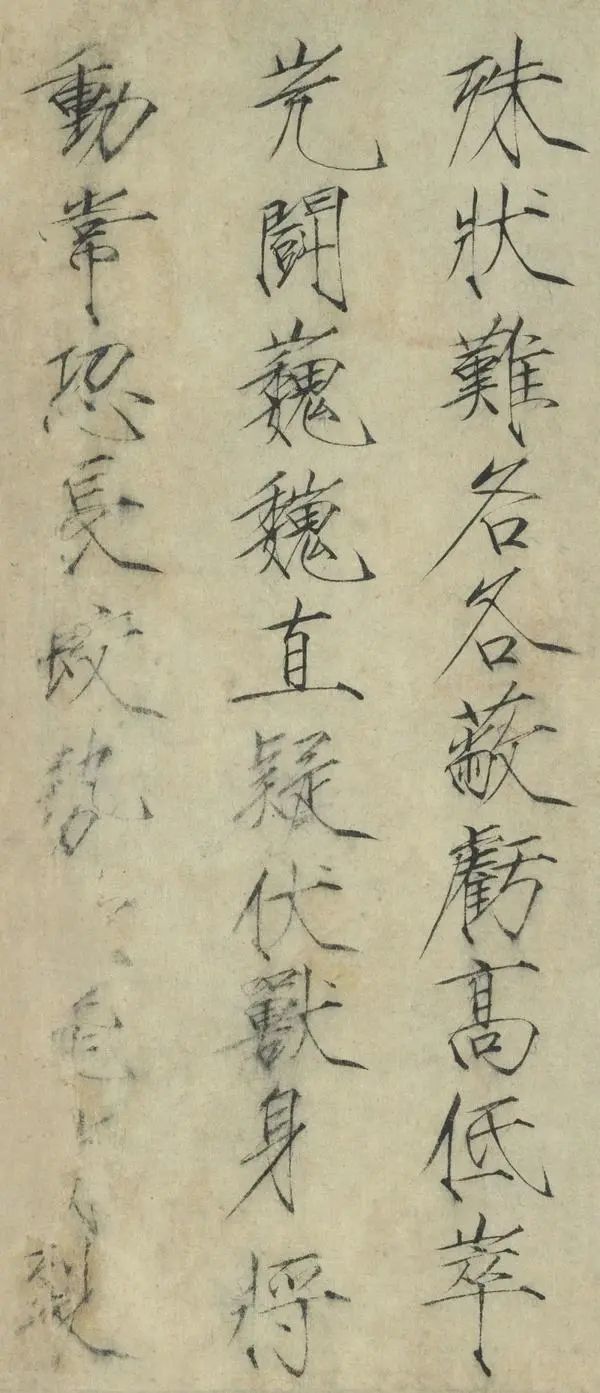 殊狀難名各蔽虧高低崒
屼闘巍巍直疑伏獸身將
動常恐長蛟勢